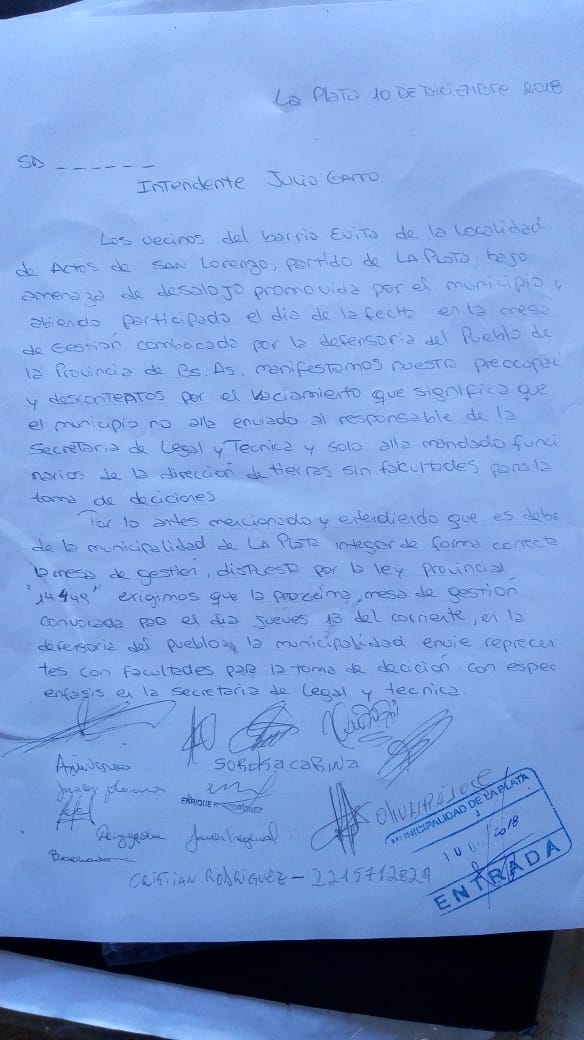 La Plata 10 DE Diciembre 2018
SD ______
Intendente Julio Garro
Los vecinos del barrio Evita de la localidad
de Actos de SAN Lorenzo, partido de LA PLATA, bajo
amenaza de desalojo promovida por el municipio y
abiendo participado el dia de la fecha en la mesa
de Gestión combocada por la defensoria del Pueblo de
la Provincia de Bs. As. manifestamos nuestra preocupac
y descontentos por el vaciamiento que significa que
el municipio no alla enviado al responsable de la
Secretaria de Legal y Tecnica y solo alla mandado funci
narios de la dirección de tierras sin facultades para la
toma de deciciones
Por lo antes mencionado y entendiendo que es debe
de la municipalidad de LA PLATA integar de forma correcta
la mesa de gestión, dispuesto por la ley provincial
"14449" exigimos que la proxima, mesa de gestión
convocada par el dia jueves 13 del corriente, en la
defensoria del pueblo, la municipalidad envie reprecen
tes con facultades para la toma de decición con espec
enfasis en la secretaria de Legal y tecnica.
SORCHA CARINA
ENRIQUE RODRIGUEZ
OLIVERA JOSE
MUNICIPALIDAD DE LA PLATA
2018
ENTRADA
CRISTIAN RODRIGUEZ - 2215712829